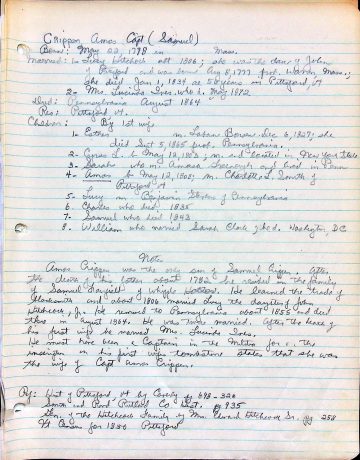 Crippen Amos Capt (Samuel)
Born: May 22, 1778 in Mass.
Married: 1- Lucy Hitchcock abt 1806; she was the daur of John
of Pittsford and was born Aug 8, 1777 prob. Mass.;
she died Jan 1, 1834 ae 56 years in Pittsford, Vt
2- Mrs. Lucinda Ives who d. May 1872
Died: Pennsylvania August 1864
Res: Pittsford Vt.
Children: By 1st wife
1- Esther m. Dec 6, 1827; she
died Sept 5, 1865 prob. Pennsylvania.
2- Cyrus L. b May 12, 1803; m. and located in New York State
3- Sarah who m. Amasa and lived in Penn
4- Amos b May 12, 1808; m. Charlotte L. Smith of
Pittsford Vt
5- Lucy m. Benjamin of Pennsylvania
6- Charles who died 1835
7- Samuel who died 1843
8. William who married Sarah Clark & lived Washington, DC
Note
Amos Crippen was the only son of Samuel Crippen. After
the death of his father about 1782 he resided in the family
of Samuel of . He learned the trade of
and about 1806 married Lucy the daughter of John
Hitchcock, Jr. He removed to Pennsylvania about 1855 and died
there in August 1864. He was twice married. After the death of
his first wife he married Mrs. Lucinda Ives.
He must have been a Captain in the Militia for . the
inscription on his first wife tombstone states that she was
the wife of Capt Amos Crippen.
Ref: Hist of Pittsford, Vt by Caverly pg 698-320
Smith and Rann Rutland Co. Hist. pg 935
Gen. of the Hitchcock Family by Mrs. Edward Hitchcock Sr. pg 258
Vt Census for 1830 Pittsford